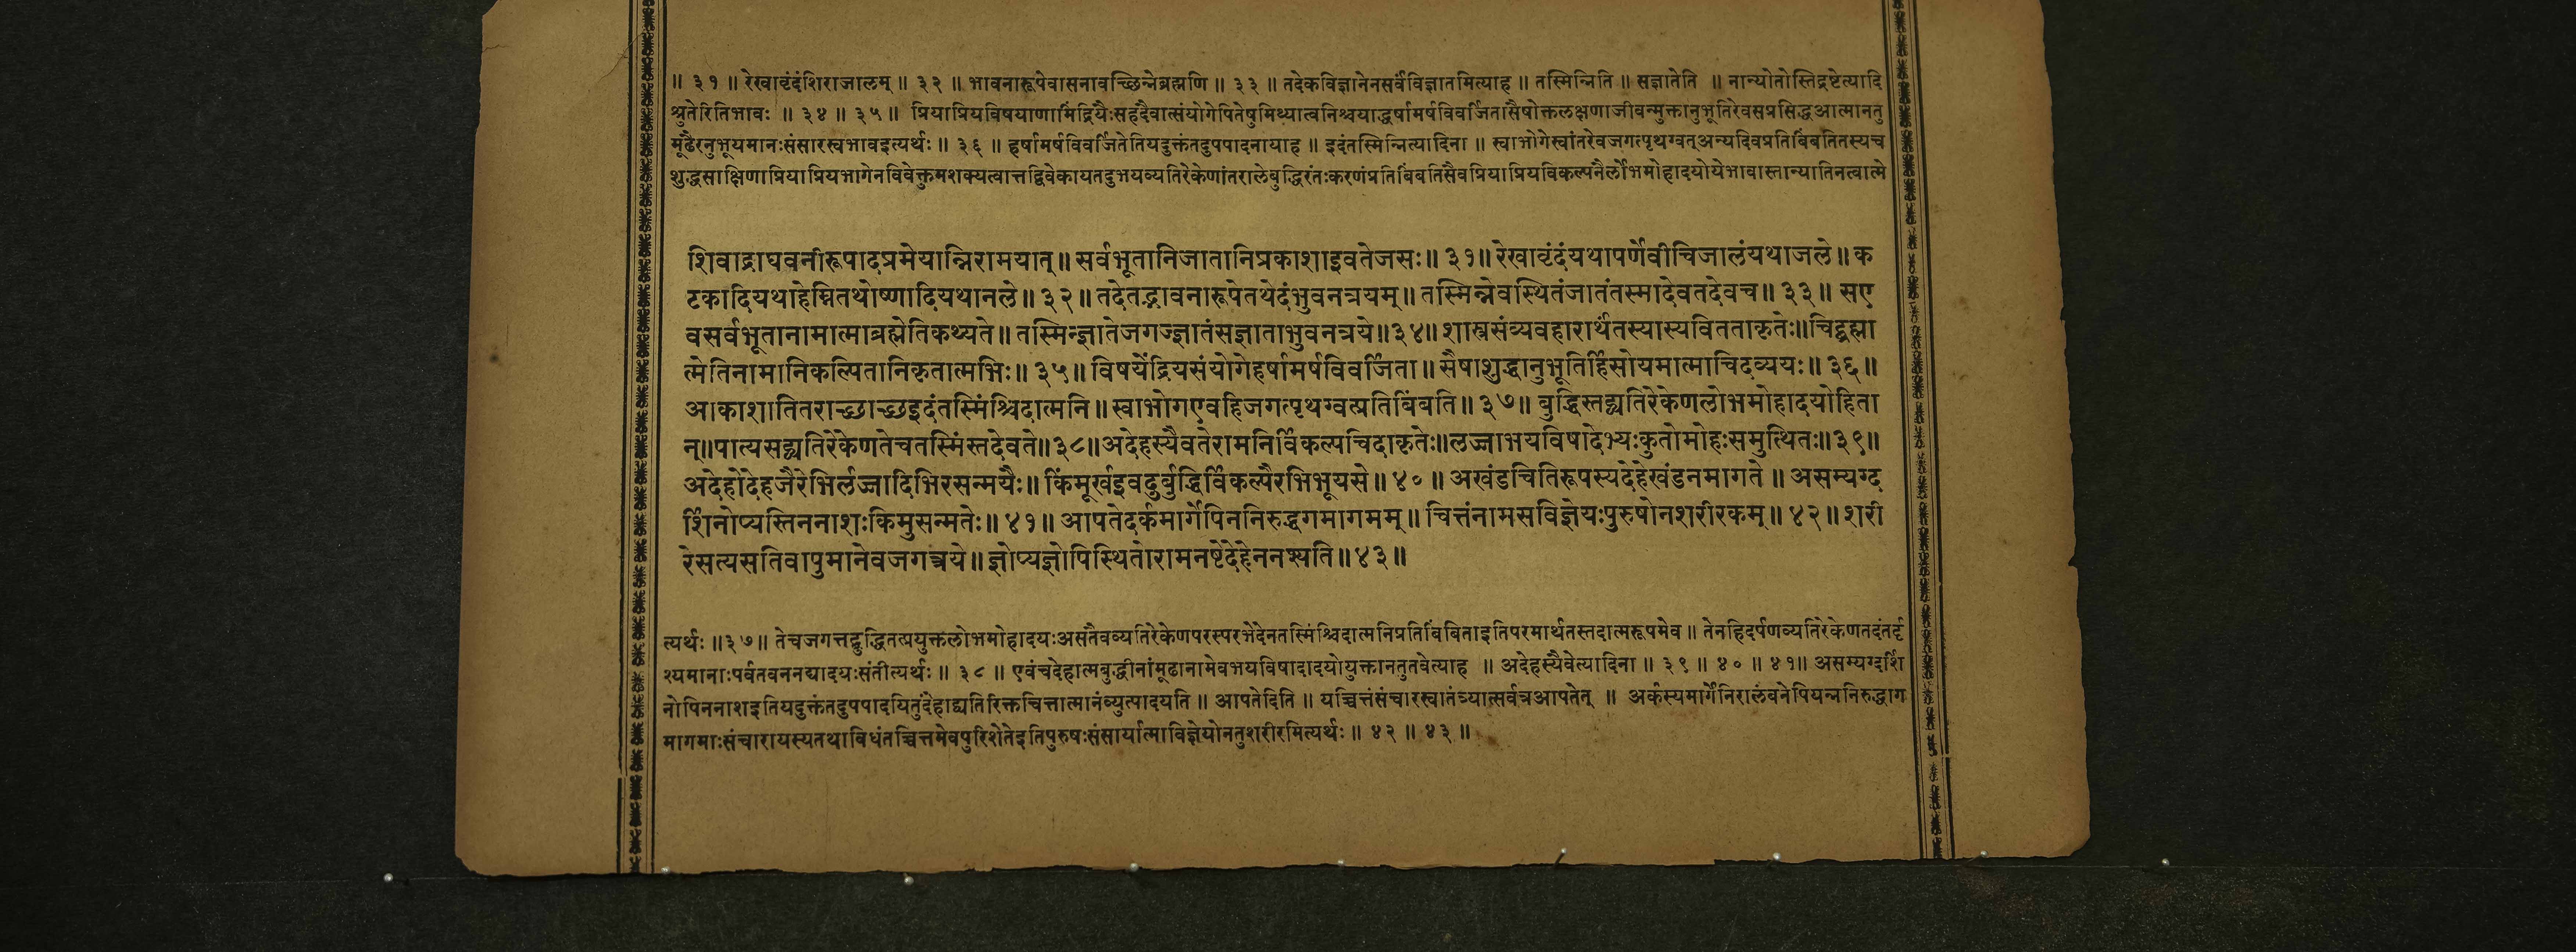 ॥ ३१ ॥ रेखावृंदंशिराजालम् ॥ ३२ ॥ भावनारूपेवासनावच्छिन्नेब्रह्मणि ॥ ३३ ॥ तदेकविज्ञानेनसर्वंविज्ञातमित्याह ॥ तस्मिन्निति ॥ सज्ञातेति ॥ नान्योतोस्तिद्रष्टेत्यादि
श्रुतेरितिभावः ॥ ३४ ॥ ३५ ॥ प्रियाप्रियविषयाणामिंद्रियैःसहदैवात्संयोगेपितेषुमिथ्यात्वनिश्चयाद्धर्षामर्षविवर्जितासैषोक्तलक्षणाजीवन्मुक्तानुभूतिरेवसप्रसिद्धआत्मानतु
मूढैरनुभूयमानःसंसारस्वभावइत्यर्थः ॥ ३६ ॥ हर्षामर्षविवर्जितेतियदुक्तंतदुपपादनायाह ॥ इदंतस्मिन्नित्यादिना ॥ स्वाभोगेस्वांतरेवजगत्पृथग्वत्अन्यदिवप्रतिबिंबतितस्यच
शुद्धसाक्षिणाप्रियाप्रियभागेनविवेक्तुमशक्यत्वात्तद्विवेकायतदुभयव्यतिरेकेणांतरालेबुद्धिरंतःकरणंप्रतिबिंबतिसैवप्रियाप्रियविकल्पनैर्लोभमोहादयोयेभावास्तान्यातिनत्वात्मे
शिवाद्राघवनीरूपादप्रमेयान्निरामयात् ॥ सर्वभूतानिजातानिप्रकाशाइवतेजसः ॥ ३१ ॥ रेखावृंदंयथापर्णेवीचिजालंयथाजले ॥ क
टकादियथाहेम्नितथोष्णादियथानले ॥ ३२ ॥ तदेतद्भावनारूपेतथेदंभुवनत्रयम् ॥ तस्मिन्नेवस्थितंजातंतस्मादेवतदेवच ॥ ३३ ॥ सए
वसर्वभूतानामात्माब्रह्मेतिकथ्यते ॥ तस्मिन्ज्ञातेजगज्ज्ञातंसज्ञाताभुवनत्रये ॥ ३४ ॥ शास्त्रसंव्यवहारार्थंतस्यास्यवितताकृतेः ॥ चिद्ब्रह्मा
त्मेतिनामानिकल्पितानिकृतात्मभिः ॥ ३५ ॥ विषयेंद्रियसंयोगेहर्षामर्षविवर्जिता ॥ सैषाशुद्धानुभूतिर्हिसोयमात्माचिदव्ययः ॥ ३६ ॥
आकाशातितराच्छाच्छइदंतस्मिंश्चिदात्मनि ॥ स्वाभोगएवहिजगत्पृथग्वत्प्रतिबिंबति ॥ ३७ ॥ बुद्धिस्तद्व्यतिरेकेणलोभमोहादयोहिता
न् ॥ पात्यसद्व्यतिरेकेणतेचतस्मिंस्तदेवते ॥ ३८ ॥ अदेहस्यैवतेरामनिर्विकल्पचिदाकृतेः ॥ लज्जाभयविषादेभ्यःकुतोमोहःसमुत्थितः ॥ ३९ ॥
अदेहोदेहजैरेभिर्लज्जादिभिरसन्मयैः ॥ किंमूर्खइवदुर्बुद्धिर्विकल्पैरभिभूयसे ॥ ४० ॥ अखंडचितिरूपस्यदेहेखंडनमागते ॥ असम्यग्द
र्शिनोप्यस्तिननाशःकिमुसन्मतेः ॥ ४१ ॥ आपतेदर्कमार्गेपिननिरुद्धगमागमम् ॥ चित्तंनामसविज्ञेयःपुरुषोनशरीरकम् ॥ ४२ ॥ शरी
रेसत्यसतिवापुमानेवजगत्त्रये ॥ ज्ञोप्यज्ञोपिस्थितोरामनष्टेदेहेननश्यति ॥ ४३ ॥
त्यर्थः ॥ ३७ ॥ तेचजगत्तद्बुद्धितत्प्रयुक्तलोभमोहादयःअसतैवव्यतिरेकेणपरस्परभेदेनतस्मिंश्चिदात्मनिप्रतिबिंबिताइतिपरमार्थतस्तदात्मरूपमेव ॥ तेनहिदर्पणव्यतिरेकेणतदंतर्दृ
श्यमानाःपर्वतवननद्यादयःसंतीत्यर्थः ॥ ३८ ॥ एवंचदेहात्मबुद्धीनांमूढानामेवभयविषादादयोयुक्तानतुतवेत्याह ॥ अदेहस्यैवेत्यादिना ॥ ३९ ॥ ४० ॥ ४१ ॥ असम्यग्दर्शि
नोपिननाशइतियदुक्तंतदुपपादयितुंदेहाद्व्यतिरिक्तचित्तात्मानंव्युत्पादयति ॥ आपतेदिति ॥ यच्चित्तंसंचारस्वातंत्र्यात्सर्वत्रआपतेत् ॥ अर्कस्यमार्गेनिरालंबनेपियन्ननिरुद्धाग
मागमाःसंचारायस्यतथाविधंतच्चित्तमेवपुरिशेतेइतिपुरुषःसंसार्यात्माविज्ञेयोनतुशरीरमित्यर्थः ॥ ४२ ॥ ४३ ॥